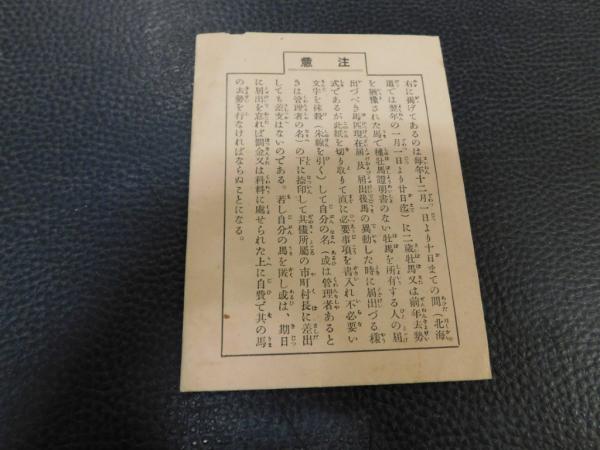 注意
右に掲げてあるのは毎年十二月一日より十日までの間(北海
道では翌年の一月一日より廿日迄)に二歳牡馬又は前年去勢
を猶豫された馬で種牡馬證明書のない牡馬を所有する人の届
出づべき馬匹現在届及届出後馬の異動した時に届出づる様
式であるが此紙を切り取りて直に必要事項を書入れ不必要い
文字を抹殺(朱線を引く)して自分の名(或は管理者あると
きは管理者の名)の下に捺印して其儘所属の市町村長に差出
しても差支はないのである。若し自分の馬を匿し或は、期日
に届出を忘れば罰金又は科料に處せられた上に自費で其の馬
の去勢を行なければならぬことになる。